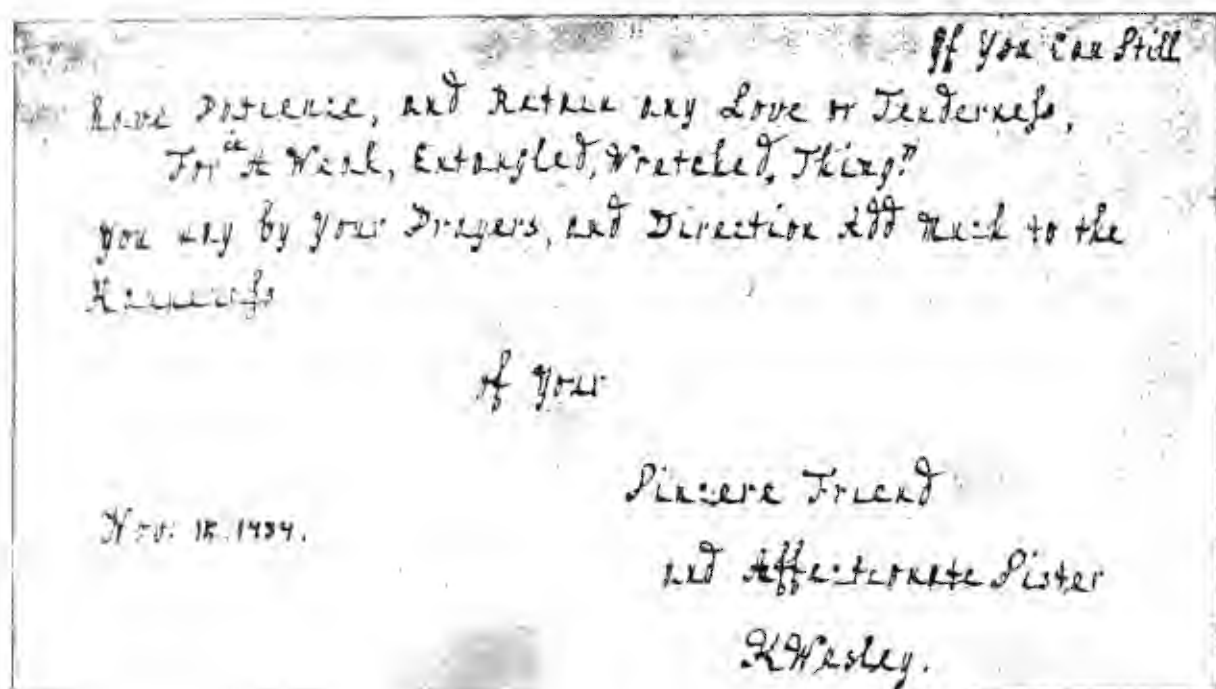 If You Can Still
have Patience, and Retain any Love or Tenderneſs,
For "A Weak, Entangled, Wretched, Thing"
you may by your Prayers, and Direction Add Much to the
of Your
Sincere Friend
Nov: 1734.
and Affectionate Sister
KWesley.